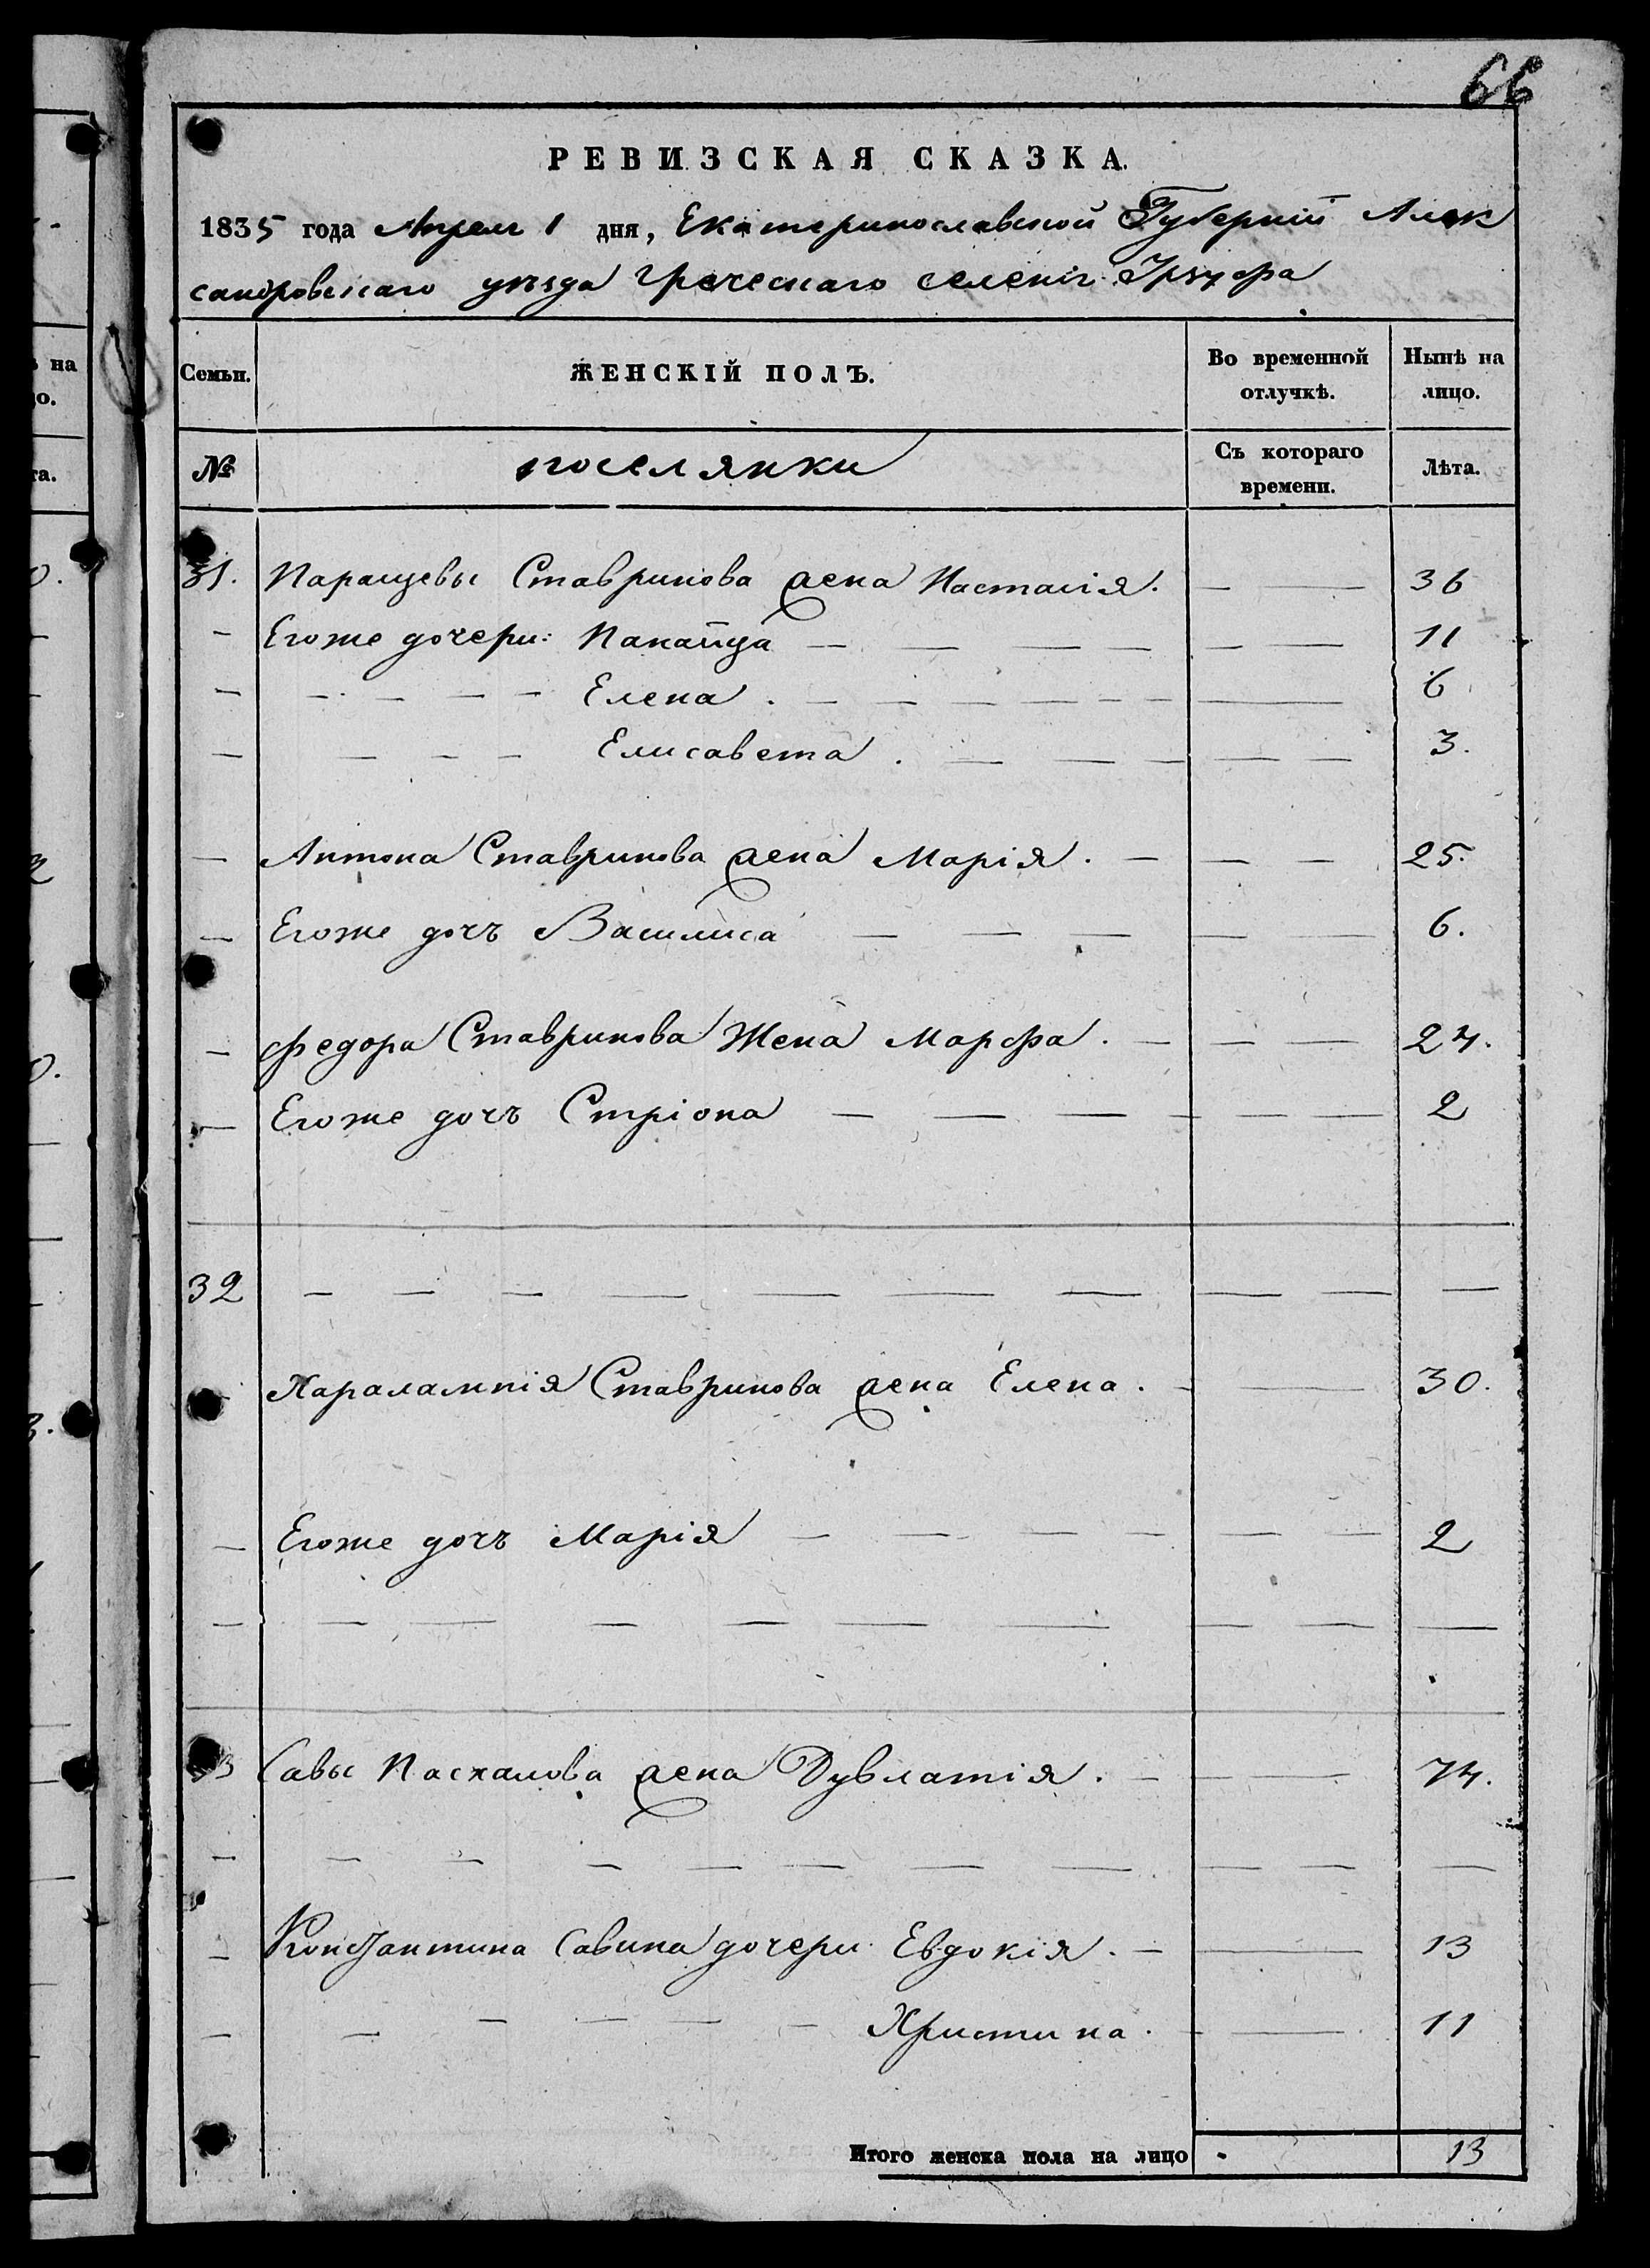 66
РЕВИЗСКАЯ СКАЗКА.
1835 года Апреля 1 дня, Екатеринославской Губерніи Алек
сандровскаго уѣзда Греческаго селенія
Семьи. ЖЕНСКІЙ ПОЛЪ. Во временной отлучкѣ. Нынѣ на лицо.
№ поселянки Съ котораго времени. Лѣта.
31. Паращевы Ставринова жена Настасія. 36
Егоже дочери: 11
Елена. 6
Елисавета. 3.
Антона Ставринова жена Марія. 25.
Егоже дочъ Василиса 6.
Федора Ставринова Жена Марфа. 24.
Егоже дочъ Стріона 2
32
Харалампія Ставринова жена Елена. 30.
Егоже дочъ Марія 2
Савы Пасхалова жена Дувлатія. 74.
Константина Савина дочери Евдокія. 13
Христина. 11
Итого женска пола на лицо 13